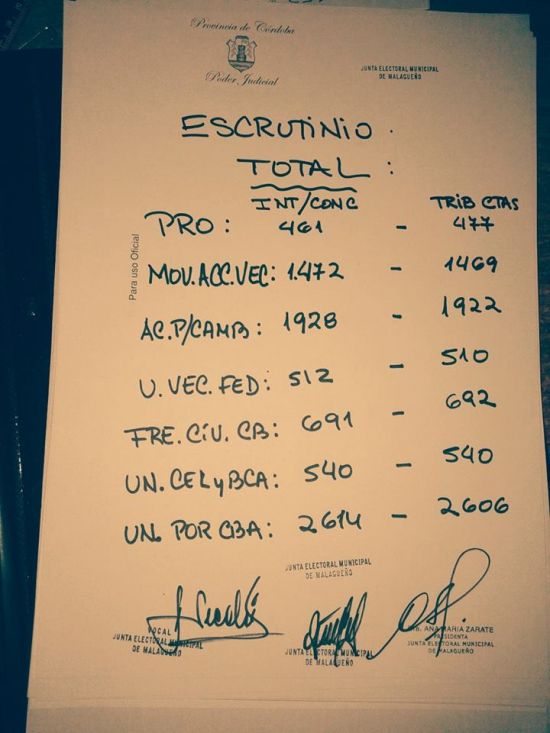 Provincia de Córdoba
Poder Judicial
JUNTA ELECTORAL MUNICIPAL
DE MALAGUEÑO
ESCRUTINIO
TOTAL:
INT/CONC TRIB CTAS
PRO: 461 - 477
MOV.ACC.VEC: 1.472 - 1469
AC.P/CAMB: 1928 - 1922
U. VEC. FED: 512 - 510
FRE. CIV. CB: 691 - 692
UN. CEL y BCA: 540 - 540
UN. POR CBA: 2614 - 2606
Para uso Oficial
JUNTA ELECTORAL MUNICIPAL
DE MALAGUEÑO
VOCAL
JUNTA ELECTORAL MUNICIPAL
DE MALAGUEÑO
JUNTA ELECTORAL MUNICIPAL
DE MALAGUEÑO
ANA MARIA ZARATE
PRESIDENTA
JUNTA ELECTORAL MUNICIPAL
DE MALAGUEÑO